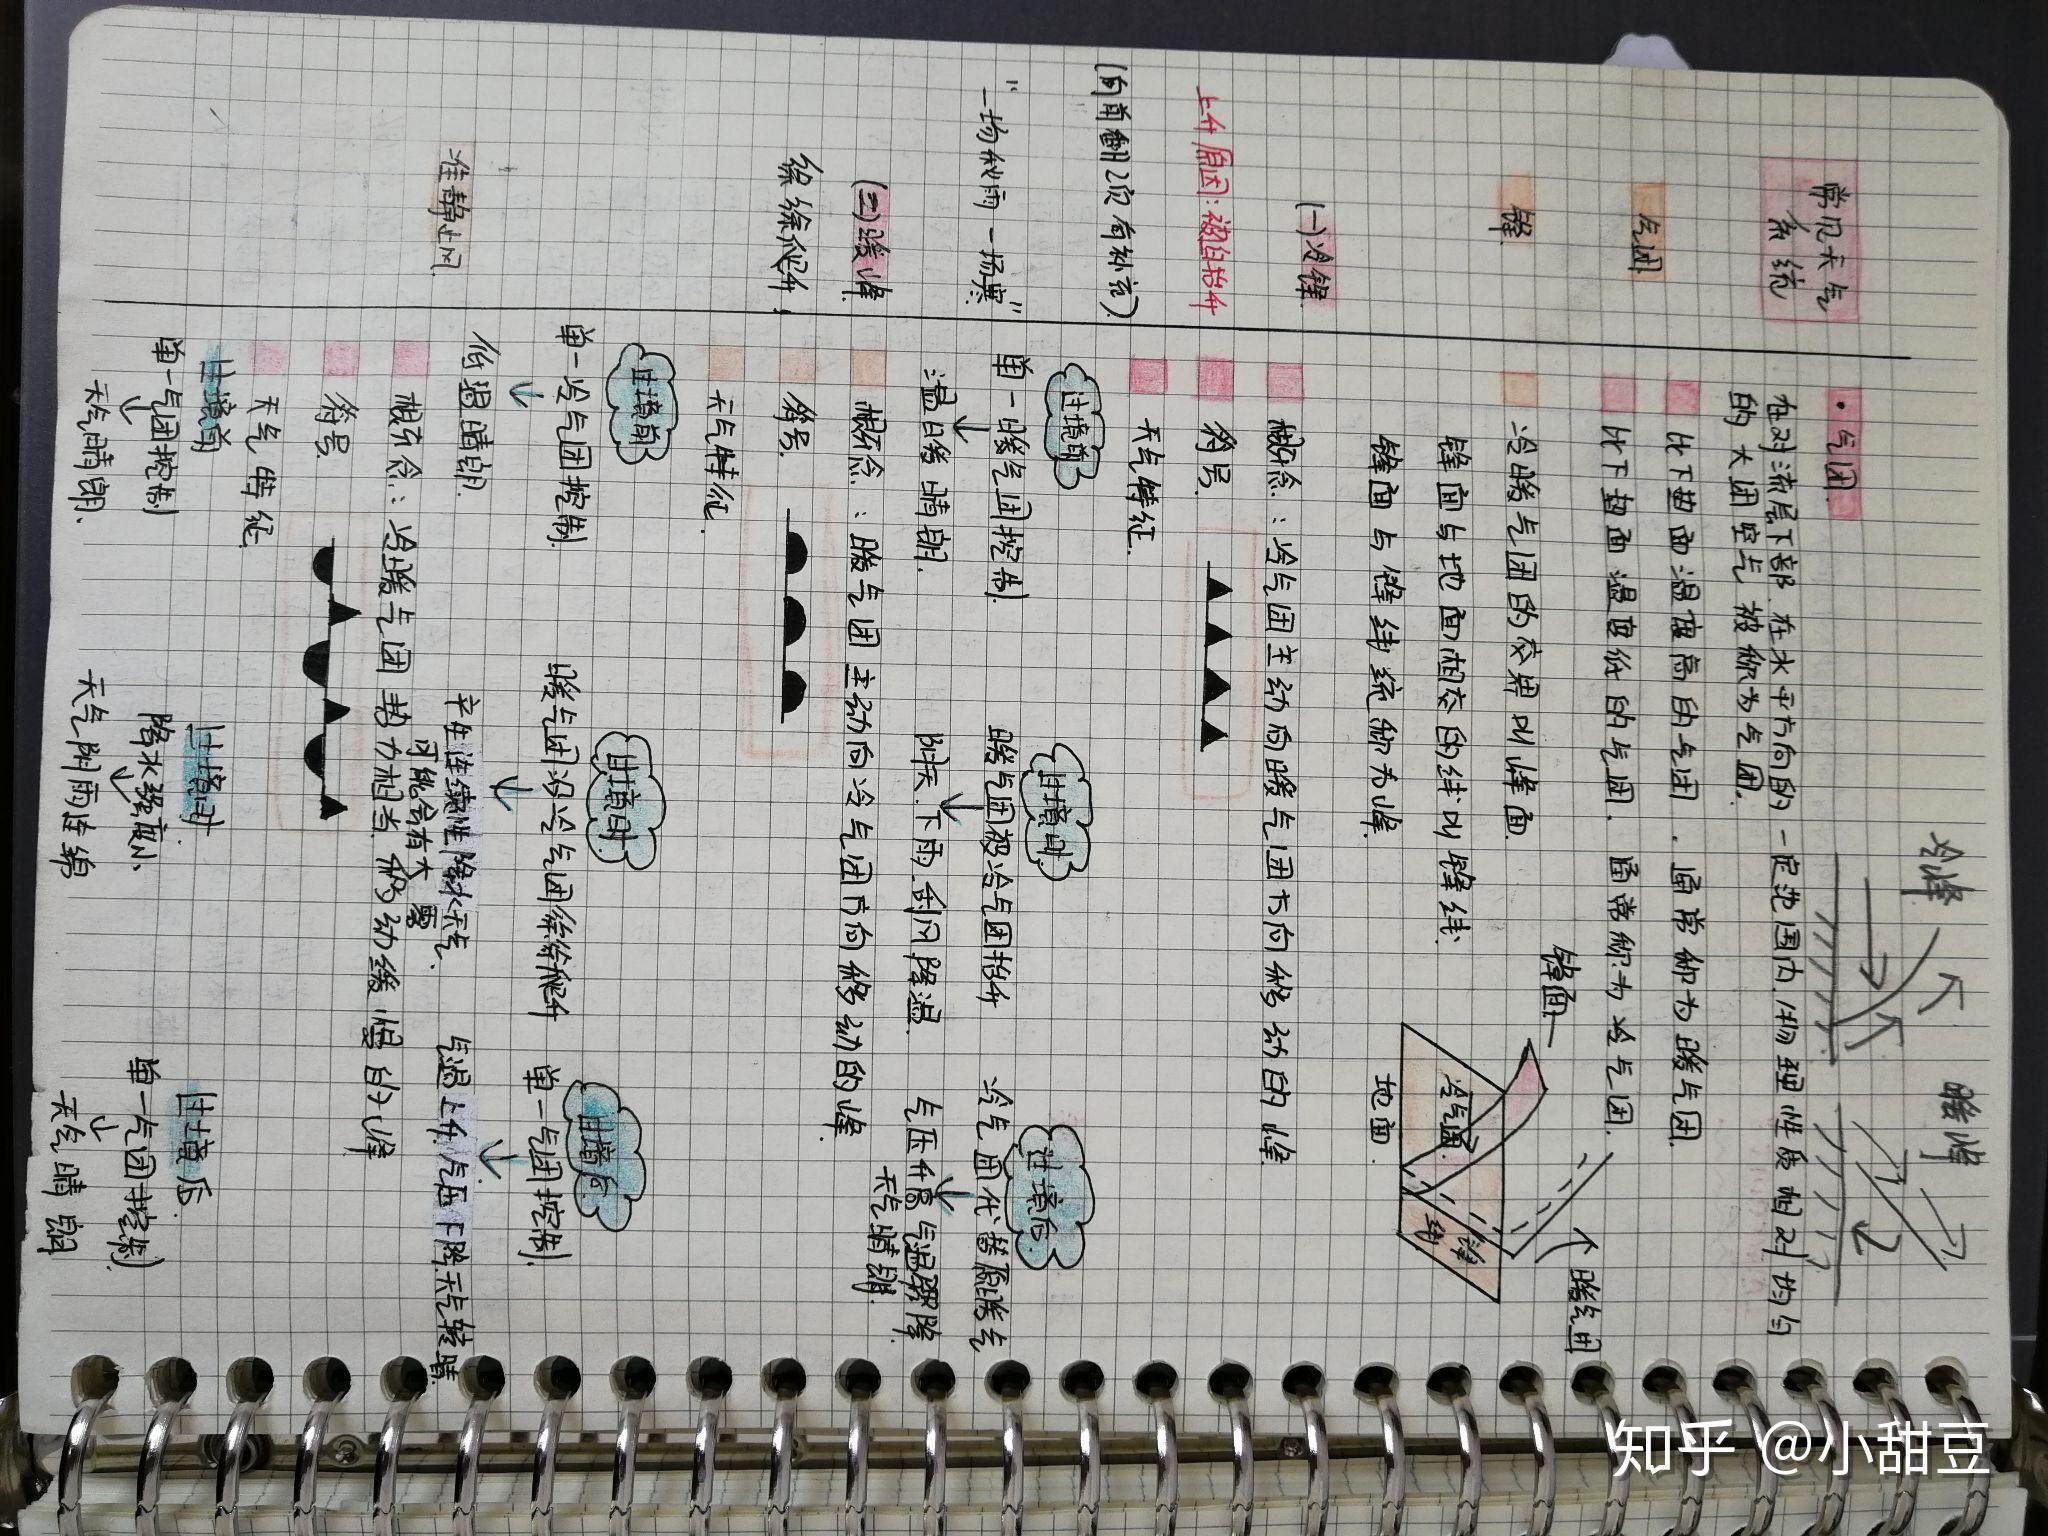 冷锋
暖锋
常见天气
系统
·气团
在对流层下部,在水平方向的一定范围内,物理性质相对均匀
的大团空气被称为气团.
气团
比下垫面温度高的气团.通常称为暖气团.
比下垫面温度低的气团.通常称为冷气团.
锋
冷暖气团的交界叫锋面.
锋面与地面相交的线叫锋线.
锋面与锋线统称为锋.
锋面
冷气团
暖气团
锋线
地面
(一)冷锋
概念:冷气团主动向暖气团方向移动的锋.
上升原因:被迫抬升
符号.
(向前翻2页有补充).
天气特征.
过境前
过境时
过境后
"一场秋雨一场寒"
单一暖气团控制.
暖气团被冷气团抬升
冷气团代替原暖气
温暖晴朗.
阴天.下雨.刮风降温.
气压升高气温骤降
天气晴朗.
(二)暖锋
概念:暖气团主动向冷气团方向移动的锋.
徐徐爬升;
符号.
天气特征.
过境前
过境时
过境后
单一冷气团控制.
暖气团沿冷气团徐徐爬升
单一气团控制.
低温晴朗.
产生连续性降水天气.
可能会有大雾
气温上升.气压下降.天气转晴.
准静止风
概念:冷暖气团势力相当.移动缓慢的锋
符号
天气特征.
过境前
过境时
过境后
单一气团控制
降水强度小
单一气团控制
天气晴朗.
天气阴雨连绵
天气晴朗
知乎 @小甜豆